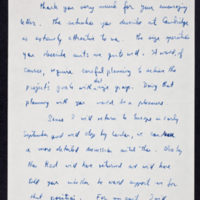 Thank you very much for your encouraging
letter. The situation you describe at Cambridge
is extremely attractive to me. The age operation
you describe suits me quite well. It would, of
course, require careful planning to achieve the
project's goals with age group. Doing that
planning with you would be a pleasure.
Since I will return to Europe in early
September and will stop by London, we can have
a more detailed discussion until then. Also by
then Rod will have returned and will have
told you
similar to
support us for
that position. For my part I will